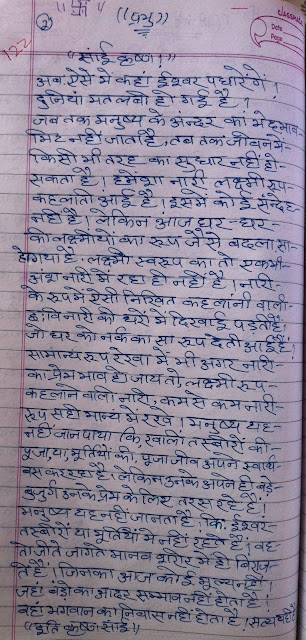 122
२
॥ प्रभु ॥
CLASSMATE
Date
Page
"सांई कृष्ण!"
अब ऐसे में कहां ईश्वर पधारेंगे!
दुनियां मतलबी हो गई है!
जब तक मनुष्य के अन्दर का भेदभाव
मिट नहीं जाता है, तब तक जीवन में-
किसी भी तरह का सुधार नहीं हो-
सकता है! हमेंशा नारी लक्ष्मी रूप-
कहलाती आई है! इसमें कोई सन्देह
नहीं है! लेकिन आज घर-घर-
की लक्ष्मीयों का रूप जैसे बदला सा-
हो गया है- लक्ष्मी स्वरूप का तो एक भी-
अंश नारी में रहा ही नहीं है! नारी-
के रूप में ऐसी कहलाने वाली-
नारी को घरों में दिखाई पड़ती हैं!
जो घर को नर्क का सा रूप देती आई हैं!
सामान्य रूप रेखा में भी अगर नारी-
का प्रेम भाव हो जाय तो, लक्ष्मी रूप-
कहलाने वाली नारी, कम से कम नारी-
रूप से ही मान्य में रखे! मनुष्य यह-
नहीं जान पाया कि खाली तस्बीरों की
पूजा, या, मूर्तियों की, पूजा जीव अपने स्वार्थ-
बस कर रहा है! लेकिन उनके अपने ही बड़े-
बुजुर्ग उनके प्रेम के लिए तरस रहे हैं!
मनुष्य यह नहीं जानता है! कि ईश्वर-
तस्बीरों या मूर्तियों में नहीं रहते हैं! वह-
तो जीते जागते मानव शरीर में ही विराज-
ते हैं! जिनका आज कोई मूल्य नहीं!
जहां बड़ों का आदर सम्मान नहीं होता है!
वहां भगवान का निवास नहीं होता है! सत्य यही है!
"इति कृष्ण सांई!"